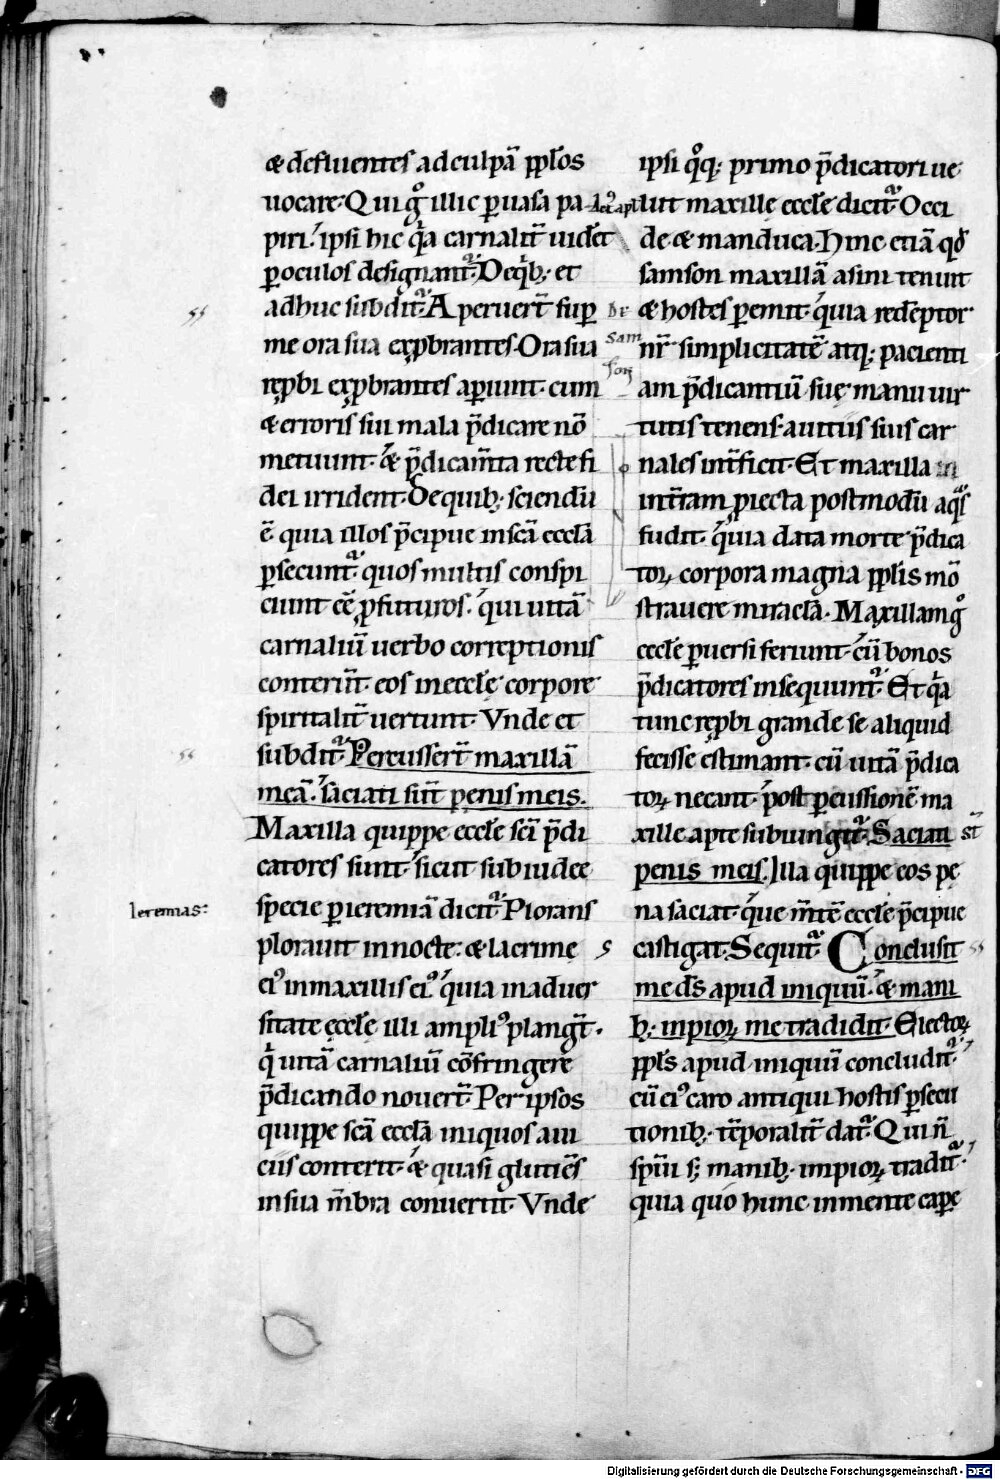 & defluentes ad culpā ꝓp̄los
uocare. Qui gͦ illic ꝑ uasa pa
piri. ipsi hic qͣa carnalit̄ uidet
ꝑ oculos designantᷣ. De qͥbꝫ. et
adhuc subditᷣ. Aperuert̄ suꝑ
me ora sua exꝓbrantes. Ora sua
reꝓbi exꝓbrantes aꝑiunt. cum
& erroris sui mala p̄dicare nō
metuunt. & p̄dicam̄ta recte fi
dei irrident. De quibꝫ. sciendū
ē. quia illos p̄cipue in sc̄a eccl̄a
ꝑsecuntᷣ. quos multis conspi
ciunt eē ꝓfuturos. qui uitā
carnaliū uerbo correptionis
conterūt. eos in eccl̄e corpore
spiritalit̄ uertunt. Vnde et
subditᷣ. Percussert̄ maxillā
meā. saciati sūt penis meis.
Maxilla quippe eccl̄e sc̄i p̄di
catores sunt. sicut sub iudee
specie ꝑ ieremiā dicitᷣ. Plorans
plorauit in nocte. & lacrime
eiꝰ in maxillis eiꝰ. quia in aduer
sitate eccl̄e illi ampliꝰ plangt̄.
qͥ uitā carnaliū cōfringere
p̄dicando nouert̄. Per ipsos
quippe sc̄a eccl̄a iniquos a ui
ciis conterit. & quasi glutiēs
in sua m̄bra conuertit. Vnde
ipsi qͦqꝫ. primo p̄dicatori ue
lut maxille eccl̄e dicitᷣ. Occi
de. & manduca. Hinc etiā qd̄
samson maxillā asini tenuit
& hostes ꝑemit. quia redēptor
nr̄ simplicitatē atqꝫ. pacienti
am p̄dicantiū sue manu uir
tutis tenens. a uitiis suis car
nales int̄ficit. Et maxilla in
in t̄ram ꝓiecta postmodū aqͣs
fudit. quia data morte p̄dica
toꝝ corpora magna ꝓp̄lis mō
strauere miracl̄a. Maxillam gͦ
eccl̄e ꝑuersi feriunt. cū bonos
p̄dicatores insequuntᷣ. Et qͣa
tunc reꝓbi grande se aliquid
fecisse estimant. cū uitā p̄dica
toꝝ necant. post ꝑcussionē ma
xille apte subiungitᷣ. Saciati st̄
penis meis. Illa quippe eos pe
na saciat. que m̄tē eccl̄e p̄cipue
castigat. Sequitᷣ. Conclusit
me ds̄ apud iniquū. & mani
bꝫ. inpioꝝ me tradidit. Electoꝝ
ꝓpl̄s apud iniquū concluditᷣ.
cū eiꝰ caro antiqui hostis ꝑsecu
tionibꝫ. tēporalit̄ datᷣ. Qui n̄
spūi sꝫ manibꝫ. impioꝝ traditᷣ.
quia quo hunc in mente capere
De
Sam
son
Ieremias:
Digitalisierung gefördert durch die Deutsche Forschungsgemeinschaft - DFG